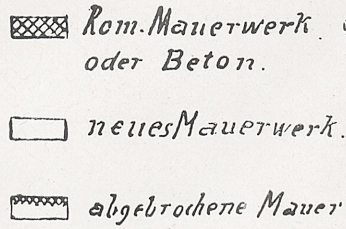 Rom. Mauerwerk.
oder Beton.
neues Mauerwerk.
abgebrochene Mauer